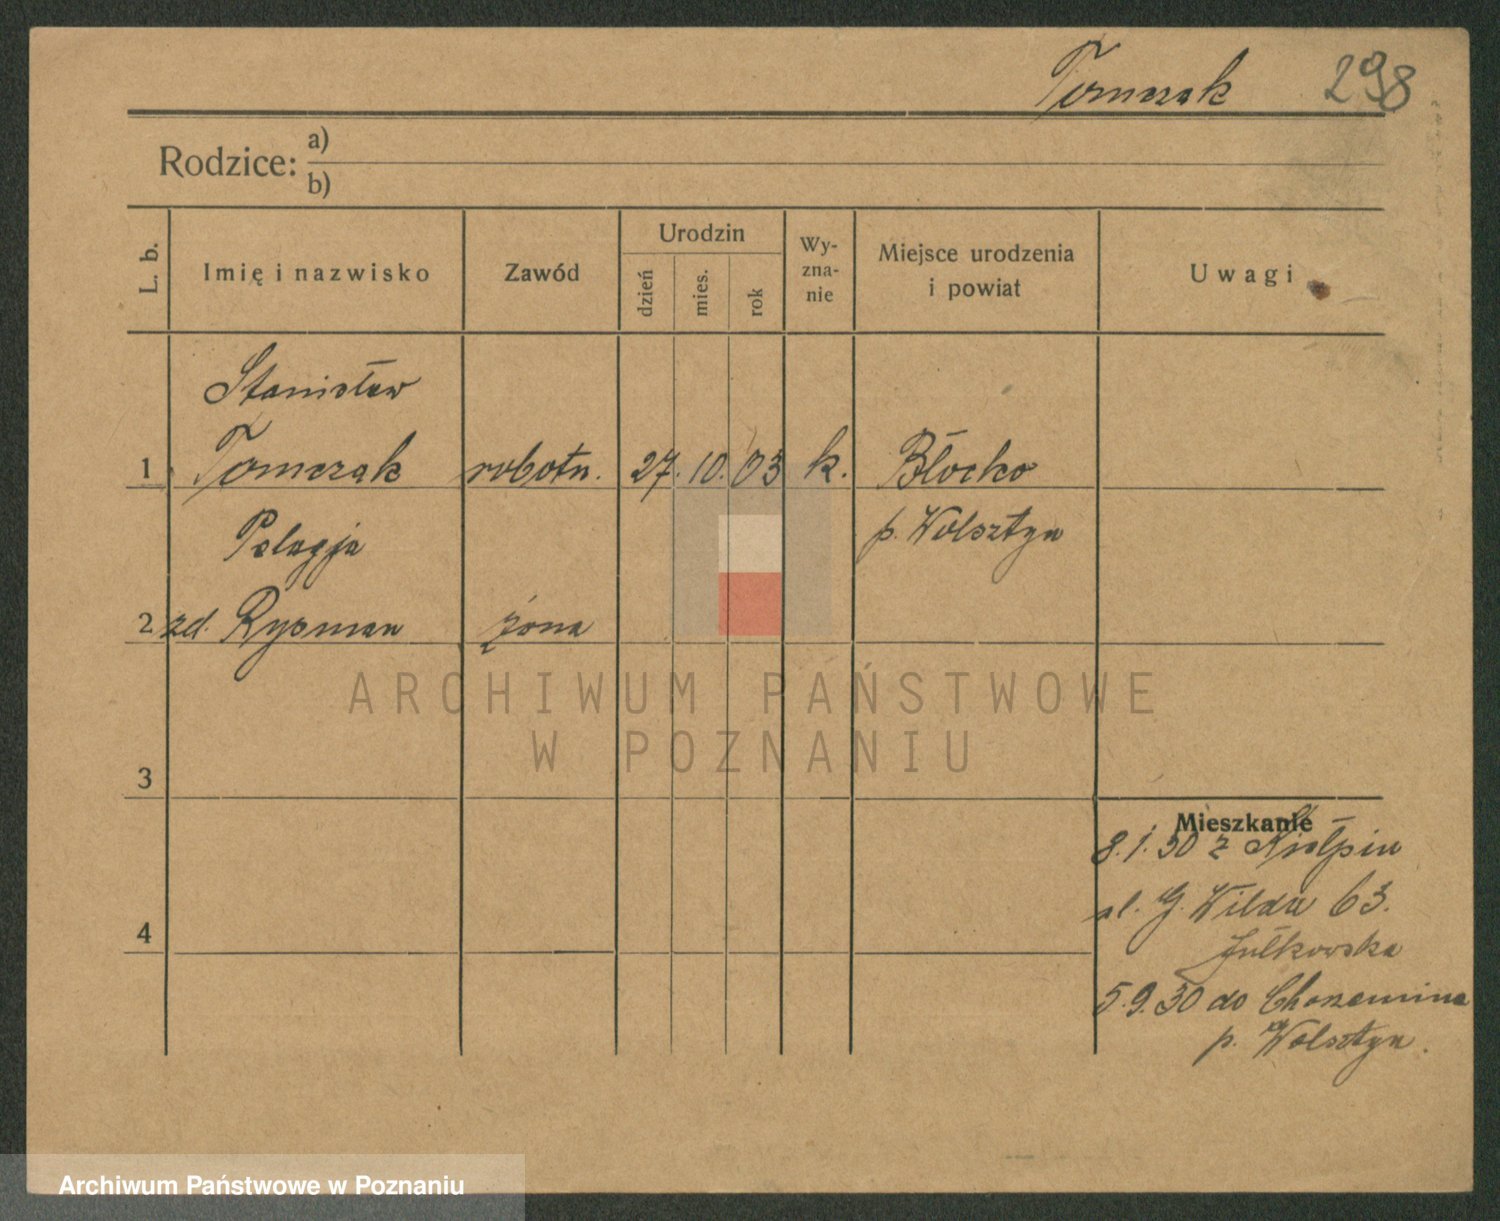 Tomczak 298
Rodzice: a)
b)
L. b. Imię i nazwisko Zawód Urodzin dzień mies. rok Wy-zna-nie Miejsce urodzenia i powiat Uwagi
Stanisław
1 Tomczak robotn. 27. 10. 03 k. Błocko
Pelagja p. Wolsztyn
2 zd. Rysman żona
ARCHIWUM PAŃSTWOWE
W POZNANIU
3
Mieszkanie
8.1.30 z Kiełpin
4
G. Wilda 63.
Julkowska
5.9.30 do Chorzemina
p. Wolsztyn.
Archiwum Państwowe w Poznaniu